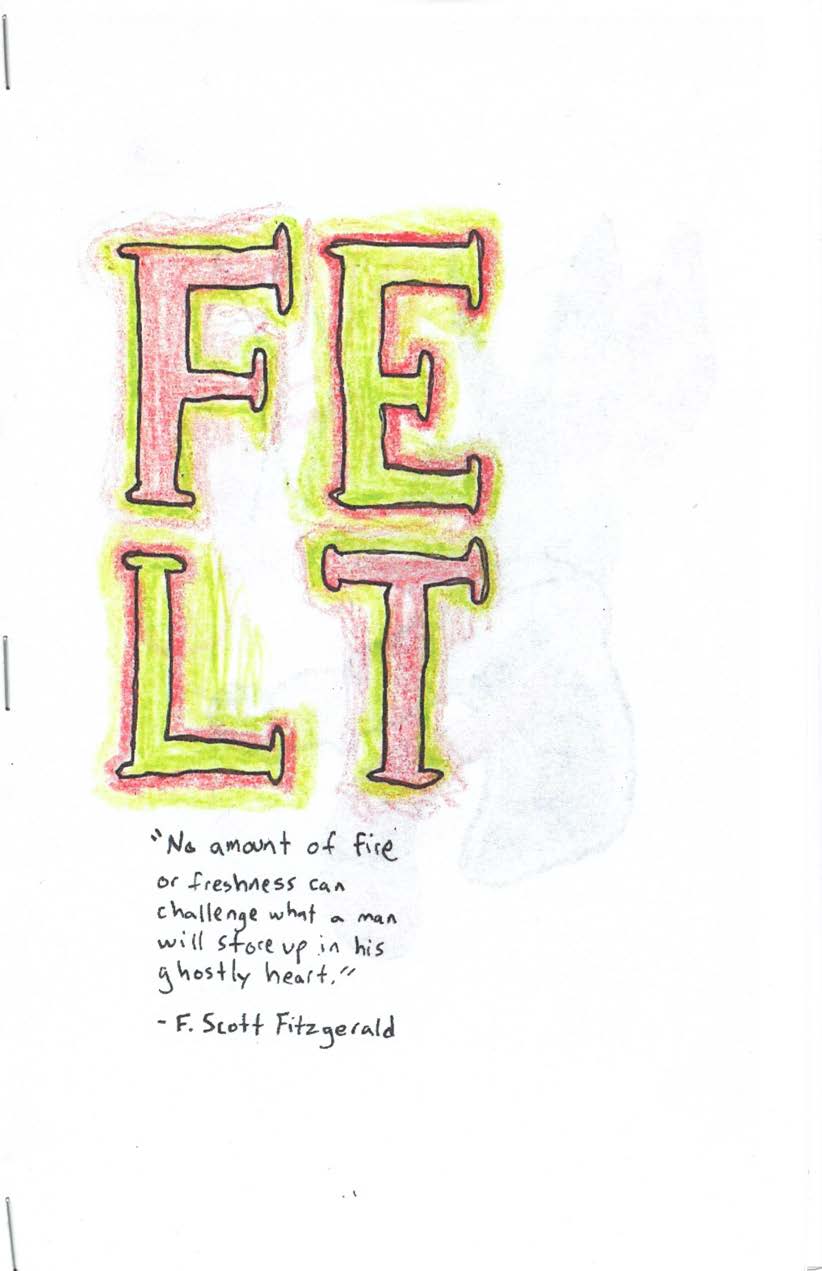 FE
LT
"No amount of fire
or freshness can
challenge what a man
will store up in his
ghostly heart."
- F. Scott Fitzgerald